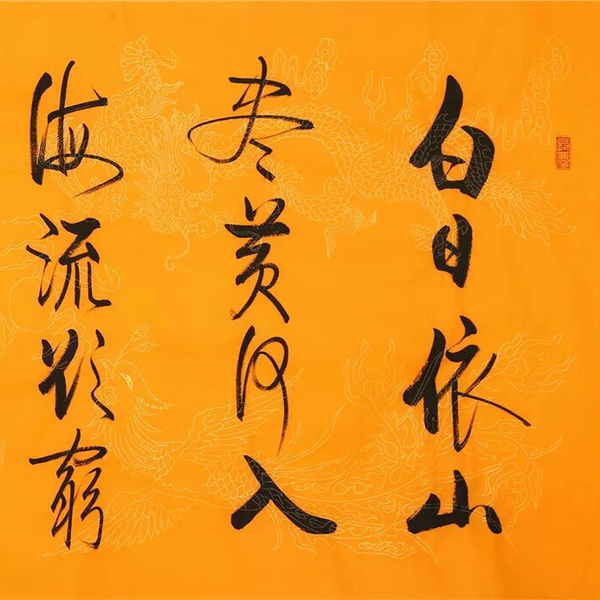 白日依山
尽黄河入
海流欲穷